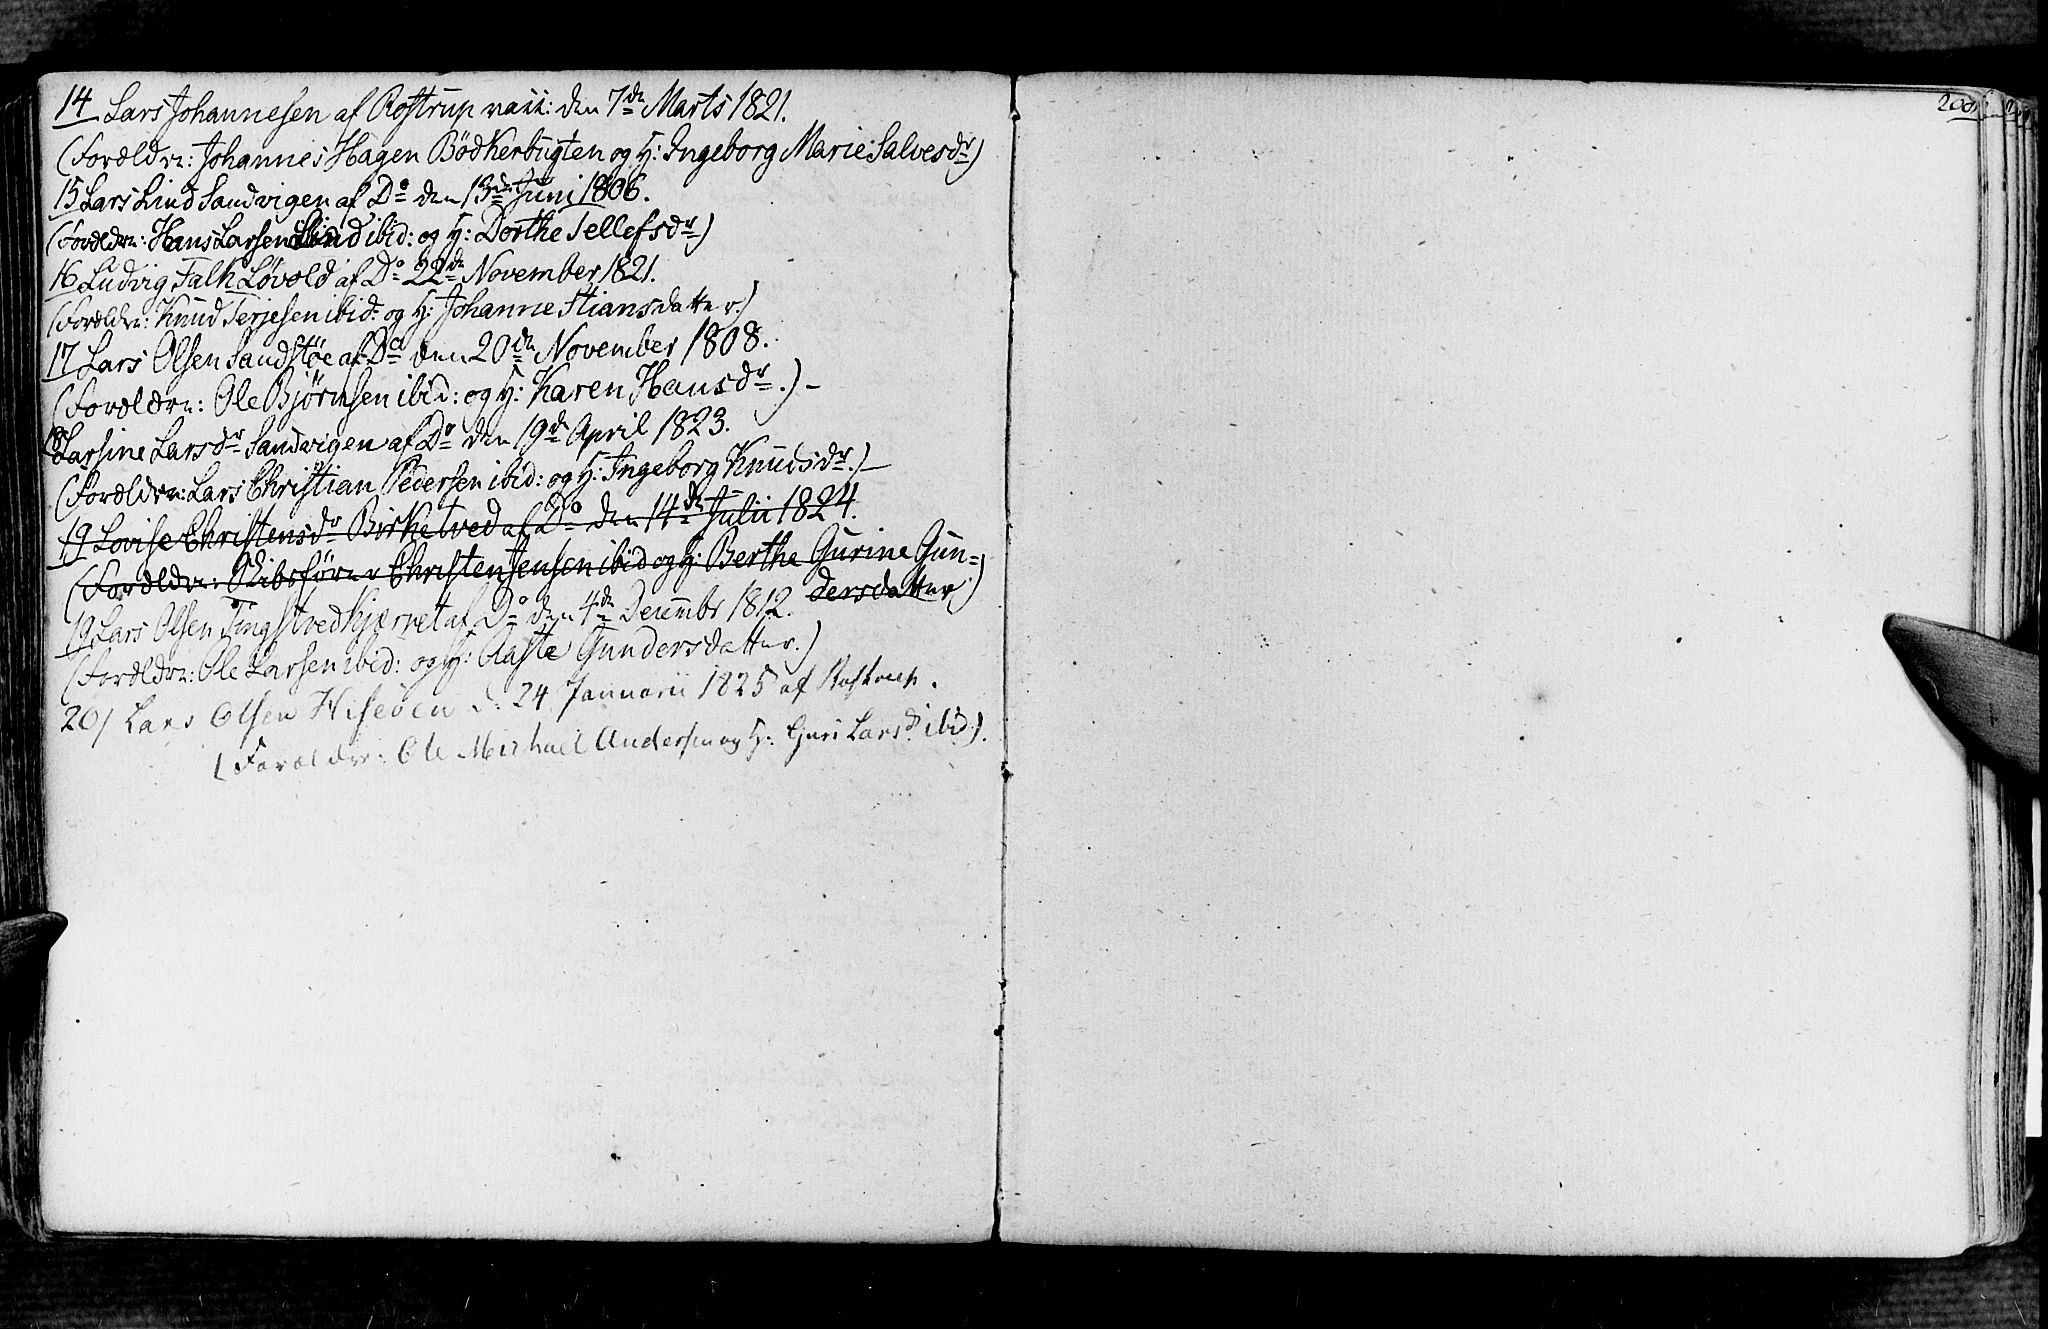 14 Lars Johannesen af Rostrup vacc: den 7de Marts 1821.
(Forældre: Johannes Hagen Bödkerbugten og H: Ingeborg Marie Salvesdr)
15 Lars Lind Sandvigen af Do den 13de Juni 1806.
(Forældre: Hans Larsen Lind ibid: og H: Dorthe Tellefsdr)
16 Ludvig Falk Løvold af Do 22de November 1821.
(Forældre: Knud Terjesen ibid: og H: Johanne Stiansdatter)
17 Lars Olsen Sandstöe af Do den 20de November 1808.
(Forældre: Ole Bjørnsen ibid: og H: Karen Hansdr.)-
18 Larsine Larsdr Sandvigen af Do den 19de April 1823.
(Forældre: Lars Christian Pedersen ibid: og H: Ingeborg Knudsdr.)-
19 Lovise Christensdr Birketved af Do den 14de Julii 1824.
(Forældre: Christen Jensen ibid og H: Berthe Gurine Gun=
dersdatter)
19 Lars Olsen Tingstvedkjærret af Do den 4de Decembr 1812.
(Forældre: Ole Larsen ibid: og H: Aaste Gundersdatter.)
20/ Lars Olsen Hiseöen d: 24 Januarii 1825 af Rostrup.
(Forældre: Ole Michael Andersen og H: Guri Larsdr ibid.).
200